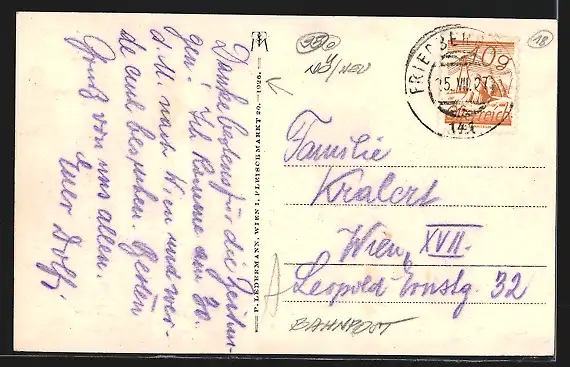 Danke bestens für die Zeitun-
gen! Ich komme am 30.
d. M. nach Wien und wer-
de euch besuchen. Besten
Gruß von uns allen.
Euer Dolfi
P. LEDERMANN, WIEN I, FLEISCHMARKT 20.—1926.
NÖ/NEU
FRIEDBE
15. VII. 27
10g
Österreich
18
Familie
Kralert
Wien, XVII.
Leopold Ernstg. 32
BAHNPOST